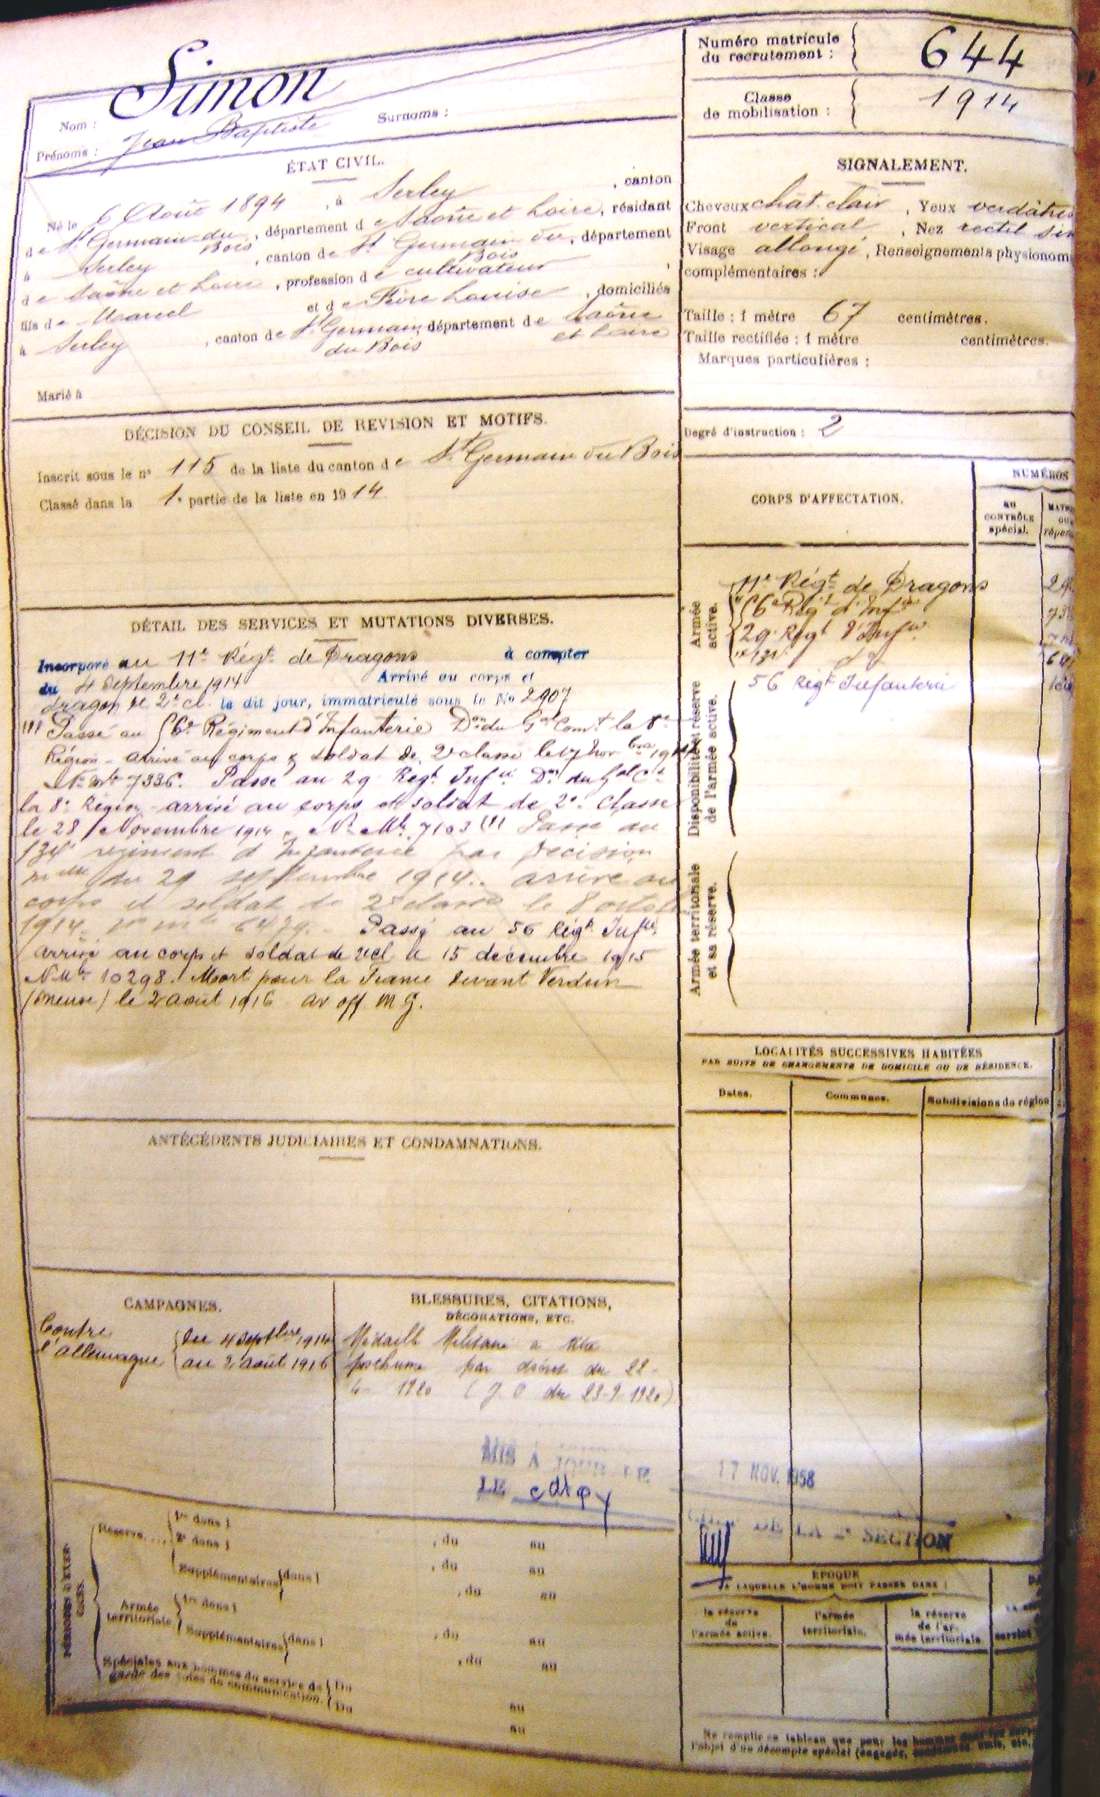 Simon
Nom :
Prénoms : Jean Baptiste
Surnoms :
Numéro matricule du recrutement : 644
Classe de mobilisation : 1914
ÉTAT CIVIL.
Né le 6 Août 1894, à Serley, canton
de St Germain du Bois, département de Saône et Loire, résidant
à Serley, canton de St Germain du Bois, département
de Saône et Loire, profession de cultivateur,
fils de Marcel et de Fère Louise, domiciliés
à Serley, canton de St Germain du Bois, département de Saône et Loire
Marié à
SIGNALEMENT.
Cheveux chât. clair, Yeux verdâtres
Front vertical, Nez rectil
Visage allongé, Renseignements physionom
complémentaires :
Taille : 1 mètre 67 centimètres.
Taille rectifiée : 1 mètre centimètres.
Marques particulières :
Degré d'instruction : 2
DÉCISION DU CONSEIL DE REVISION ET MOTIFS.
Inscrit sous le n° 115 de la liste du canton de St Germain du Bois
Classé dans la 1e partie de la liste en 1914
DÉTAIL DES SERVICES ET MUTATIONS DIVERSES.
Incorporé au 11e Régt de Dragons à compter
du 4 Septembre 1914 Arrivé au corps et
dragon de 2e cl. le dit jour, immatriculé sous le No 2907
(1) Passé au 56e Régiment d'Infanterie Don du Gal Comt la 8e
Région - arrivé au corps & soldat de 2e classe le 17 Novbre 1914
No Mle 7336. Passé au 29 Régt Infie Don du Gal Ct
la 8e Région - arrivé au corps et soldat de 2e classe
le 28 Novembre 1914. No Mle 7103 (1) Passé au
134e régiment d'Infanterie par décision
mlle du 29 septembre 1914. arrivé au
corps et soldat de 2e classe le 8 octobre
1914. no mle 6479. Passé au 56 Régt Infie
arrivé au corps et soldat de 2e cl le 15 décembre 1915
No Mle 10298. Mort pour la France devant Verdun
(Meuse) le 2 août 1916 av. off. M. G.
CORPS D'AFFECTATION.
NUMÉROS
au CONTRÔLE spécial.
Armée active.
11e Régt de Dragons
56e Régt d'Infie
29 Régt d'Infie
134 do
56 Régt Infanterie
Disponibilité et réserve de l'armée active.
Armée territoriale et sa réserve.
LOCALITÉS SUCCESSIVES HABITÉES
PAR SUITE DE CHANGEMENTS DE DOMICILE OU DE RÉSIDENCE.
Dates. Communes. Subdivisions de région
ANTÉCÉDENTS JUDICIAIRES ET CONDAMNATIONS.
CAMPAGNES.
Contre l'Allemagne
du 4 septbre 1914
au 2 août 1916
BLESSURES, CITATIONS,
DÉCORATIONS, ETC.
Médaille Militaire à titre
posthume par décret du 22
1920 (J.O du 23-9-1920)
MIS A JOUR LE
LE
17 NOV. 1958
DE LA 2e SECTION
PÉRIODES D'EXERCICES.
Réserve
1re dans l , du au
2e dans l , du au
Supplémentaires dans l , du au
Armée territoriale
1re dans l , du au
Supplémentaires dans l , du au
Spéciales aux hommes du service de garde des voies de communication.
Du au
Du au
ÉPOQUE
A LAQUELLE L'HOMME DOIT PASSER DANS :
la réserve de l'armée active.
l'armée territoriale.
la réserve de l'armée territoriale
Ne remplir ce tableau que pour les hommes
l'objet d'un décompte spécial (engagés,